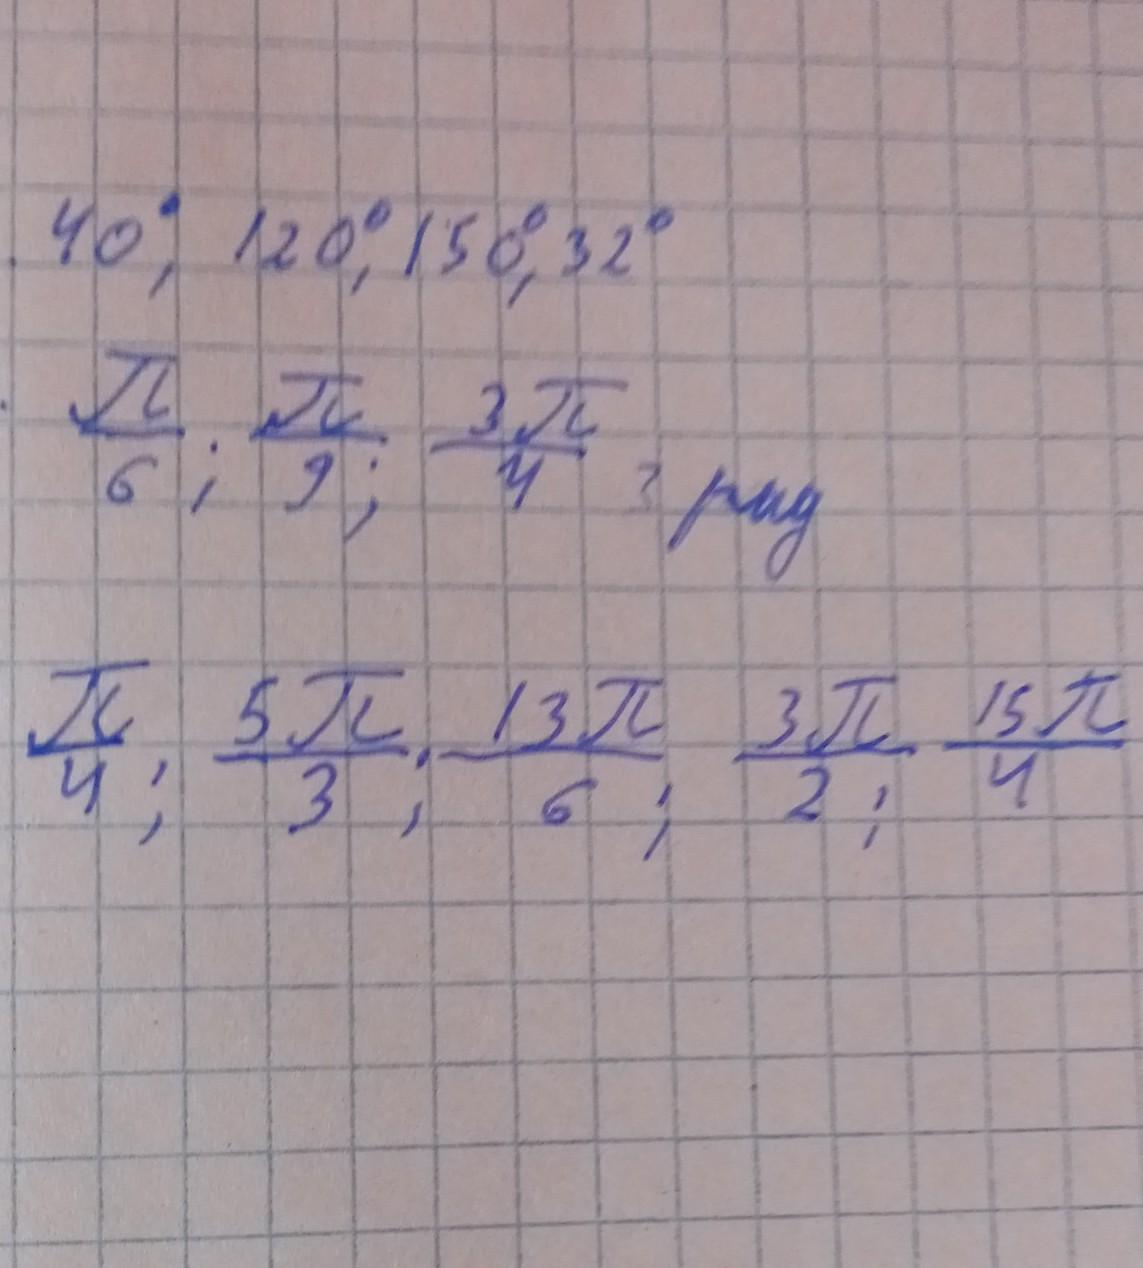 40°; 120°, 150°, 32°
π/6; π/9; 3π/4 3 рад
π/4; 5π/3; 13π/6; 3π/2; 15π/4